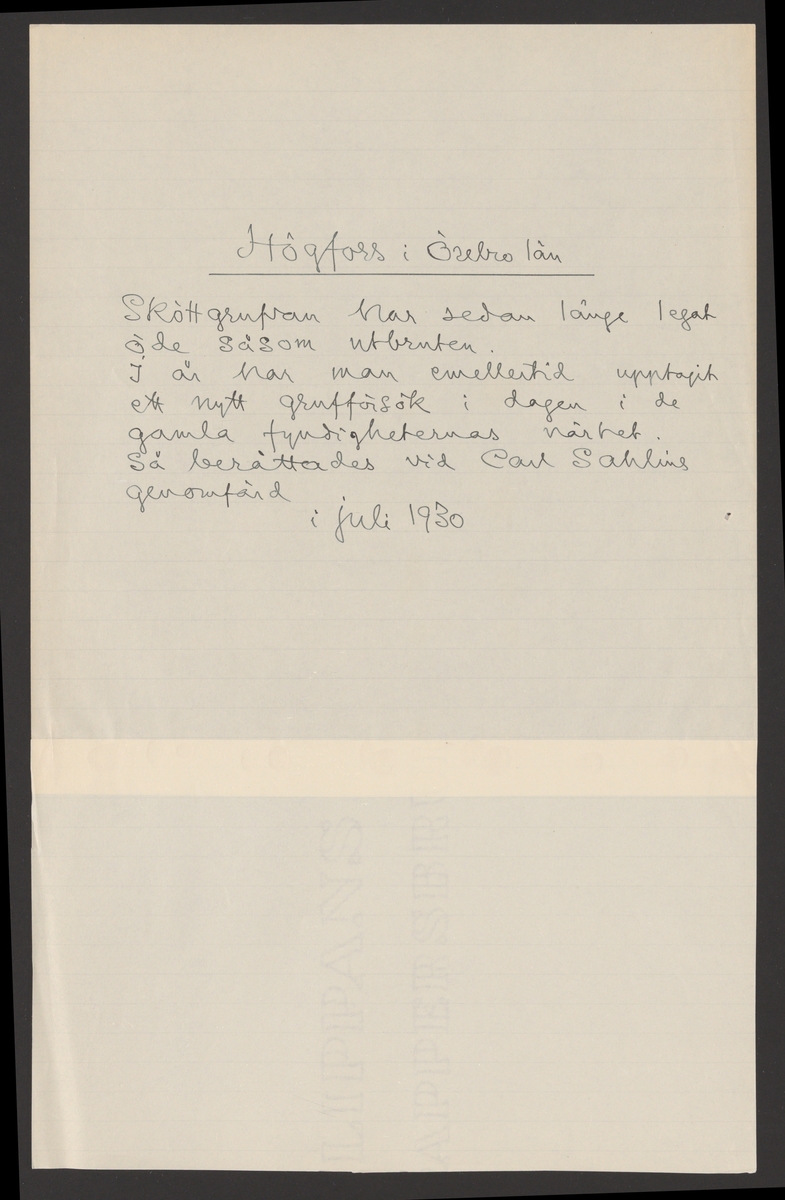 Högfors i Örebro län
Sköttgrufvan har sedan länge legat
öde såsom utbruten.
I år har man emellertid upptagit
ett nytt grufförsök i dagen i de
gamla fyndigheternas närhet.
Så berättades vid Carl Sahlins
genomfärd
i juli 1930
LIPPANS
APPERSBRU